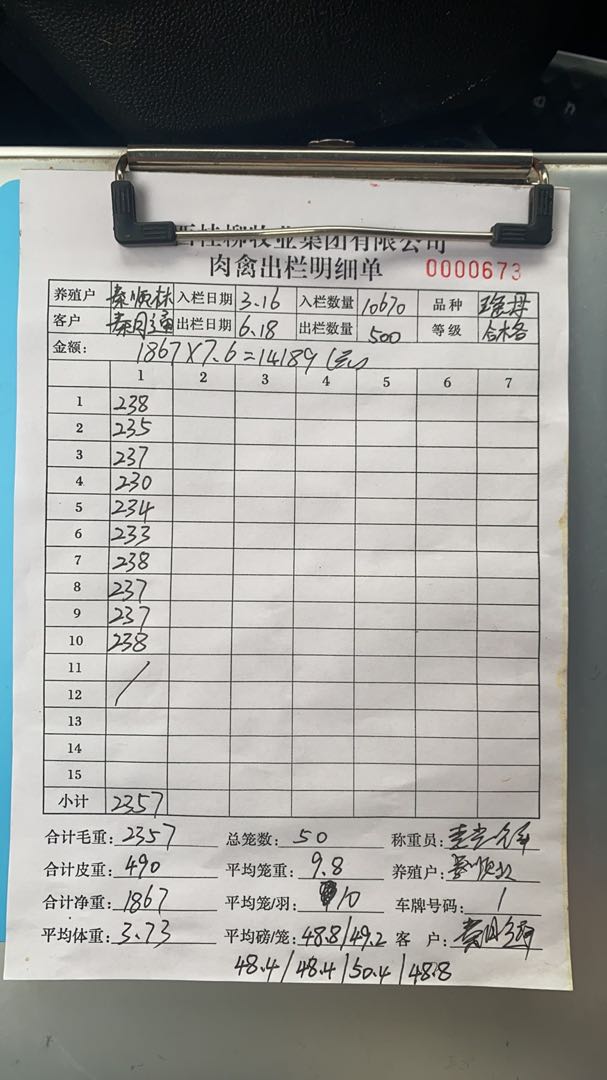 西桂柳牧业集团有限公司
肉禽出栏明细单 0000673
养殖户 秦顺林 入栏日期 3.16 入栏数量 10670 品种 瑶鸡
客户 出栏日期 6.18 出栏数量 500 等级 合格
金额: 1867×7.6=14189(元)
1 2 3 4 5 6 7
1 238
2 235
3 237
4 230
5 234
6 233
7 238
8 237
9 237
10 238
11
12
13
14
15
小计 2357
合计毛重: 2357 总笼数: 50 称重员:
合计皮重: 490 平均笼重: 9.8 养殖户:
合计净重: 1867 平均笼/羽: 10 车牌号码: 1
平均体重: 3.73 平均磅/笼: 48.8/49.2 客户:
48.4/48.4/50.4/48.8